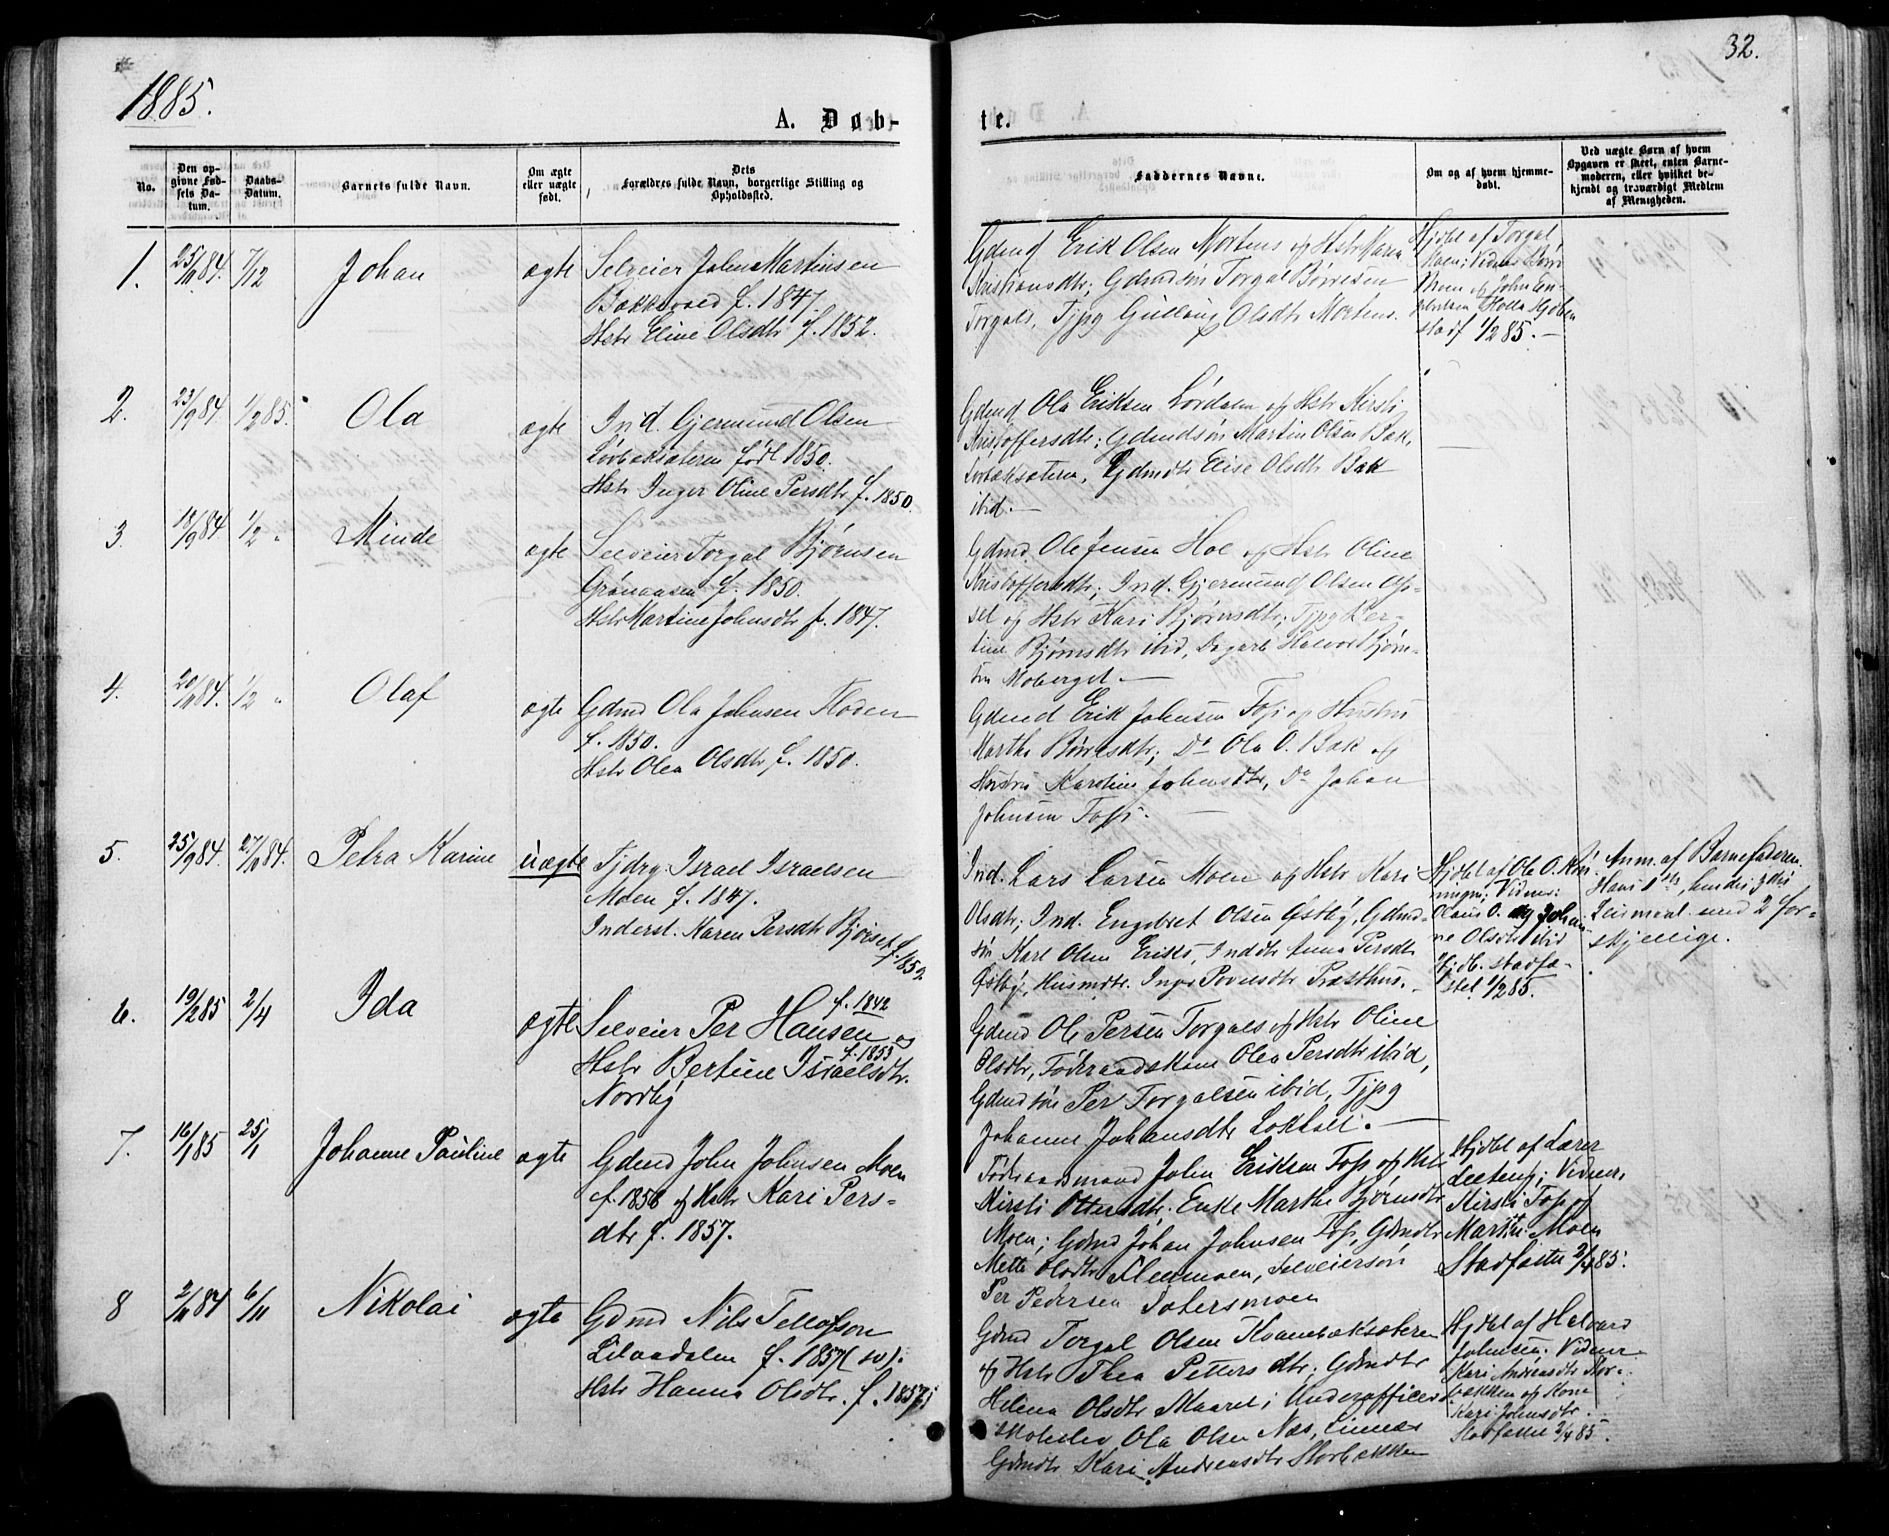 1885.
32.
A. Døb-
te.
No.
Den op-
givne Fød-
sels Da-
tum.
Daabs-
Datum.
Barnets fulde Navn.
Om ægte
eller uægte
født.
Dets
Forældres fulde Navn, borgerlige Stilling og
Opholdssted.
Faddernes Navne.
Om og af hvem hjemme-
døbt.
Ved uægte Børn af hvem
Opgaven er skeet, enten Barne-
moderen, eller hvilket be-
kjendt og troværdigt Medlem
af Menigheden.
1.
25/11 84.
7/12
Johan
ægte
Selveier John Martinsen
f. 1847.
Hstr Eline Olsdtr f. 1852.
Gdmd Erik Olsen Mortens og Hstr Karen
Kristiansdtr; Gdmdsøn Torgal Børresen
Torgals, Tjpg Gulling Olsdtr Mortens.
Hjdbt af Torgal
Moen; Vidner Børre
Moen og John
stadf 1/2 85.
2.
23/9 84
1/2 85.
Ola
ægte
Ind. Gjermund Olsen
Lørbæksæteren født 1850.
Hstr Inger Oline Persdtr f. 1850.
Gdmd Ola Eriksen Lørdalen og Hstr Kirsti
Kristoffersdtr; Gdmdsøn Martin Olsen Bak,
Lørbæksæteren, Gdmdtr Elise Olsdtr Bak
ibid.
3.
18/9 84
1/2 "
Minde
ægte
Selveier Torgal Bjørnsen
Grønaasen f. 1850.
Hstr Martine Johnsdtr f. 1847.
Gdmd Ole Jensen Hoe og Hstr Oline
Kristoffersdtr; Ind. Gjermund Olsen Op-
set og Hstr Kari Bjørnsdtr; Tjpg Ker-
tine Bjørnsdtr ibid, Dagarb Halvor Bjørn-
sen Moberget.
4.
20/11 84.
1/2 "
Olaf
ægte
Gdmd Ola Johnsen Floden
f. 1850.
Hstr Olea Olsdtr f. 1850.
Gdmd Erik Johnsen Fops og Hustru
Marthe Børresdtr; Do Ola O. Bak og
Hustru Karstine Johnsdtr, Do Johan
Johnsen Fops.
5.
25/9 84.
27/9 84.
Petra Karine
uægte
Tjdrg Israel Israelsen
Moen f. 1847.
Inderst. Karen Persdtr Bjørset f. 1859.
Ind. Lars Larsen Moen og Hstr Kari
Olsdtr; Ind. Engebret Olsen Østby, Gdmd-
søn Karl Olsen Eriks, Inddtr Anna Persdtr
Østby, Husmdtr. Inger Povelsdtr Præsthus.
Hjdbt af Ola O. Køi-
ningen; Vidner:
Olaus O. og Johan-
ne Olsdtr ibid
Hjdb. stadfæ-
stet 1/2 85.
Anm. af Barnefaderen.
Hans 1ste, hendes 3die
Leiermaal med 2 for-
skjellige.
6.
19/2 85
2/4
Ida
ægte
Selveier Per Hansen f. 1842 og
Hstr Bertine Israelsdtr. f. 1853
Nordby
Gdmd Ole Persen Torgals og Hstr Oline
Olsdtr, Føderaadskone Olea Persdtr ibid,
Gdmdsøn Per Torgalsen ibid, Tjpg
Johanne Johansdtr Lokkoli.
7.
16/1 85
25/1
Johanne Pauline
ægte
Gdmd John Johnsen Moen
f. 1856 og Hstr Kari Pers-
dtr f. 1857.
Føderaadsmand John Eriksen Fops og Hstr
Kirsti Ottersdtr. Enke Marthe Bjørnsdtr
Moen; Gdmd Johan Johnsen Fops, Gdmdtr
Mette Olsdtr Flenmoen, Selveiersøn
Per Pedersen Sætersmoen
Hjdbt af Lærer
Leeteng; Vidner,
Kirsti Fops og
Marthe Moen
Stadfæstet 2/4 85.
8
2/11 84
6/11
Nikolai
ægte
Gdmd Nils Tellofson
Lilaadalen f. 1857 (sv).
Hstr Hanna Olsdtr. f. 1857;
Gdmd Torgal Olsen Kvannbæksæteren
og Hstr Thea Pettersdtr; Gdmdtr
Helena Olsdtr Maaret; Underofficers-
skoleelev Ola Olsen Næs, Linnæs
Gdmdtr Kari Andreasdtr Storbækken
Hjdbt af Halvard
Johnsen. Vidner
Kari Andreasdtr Stor-
bækken og Kone
Kari Johnsdtr.
Stadfæstet 2/4 85.